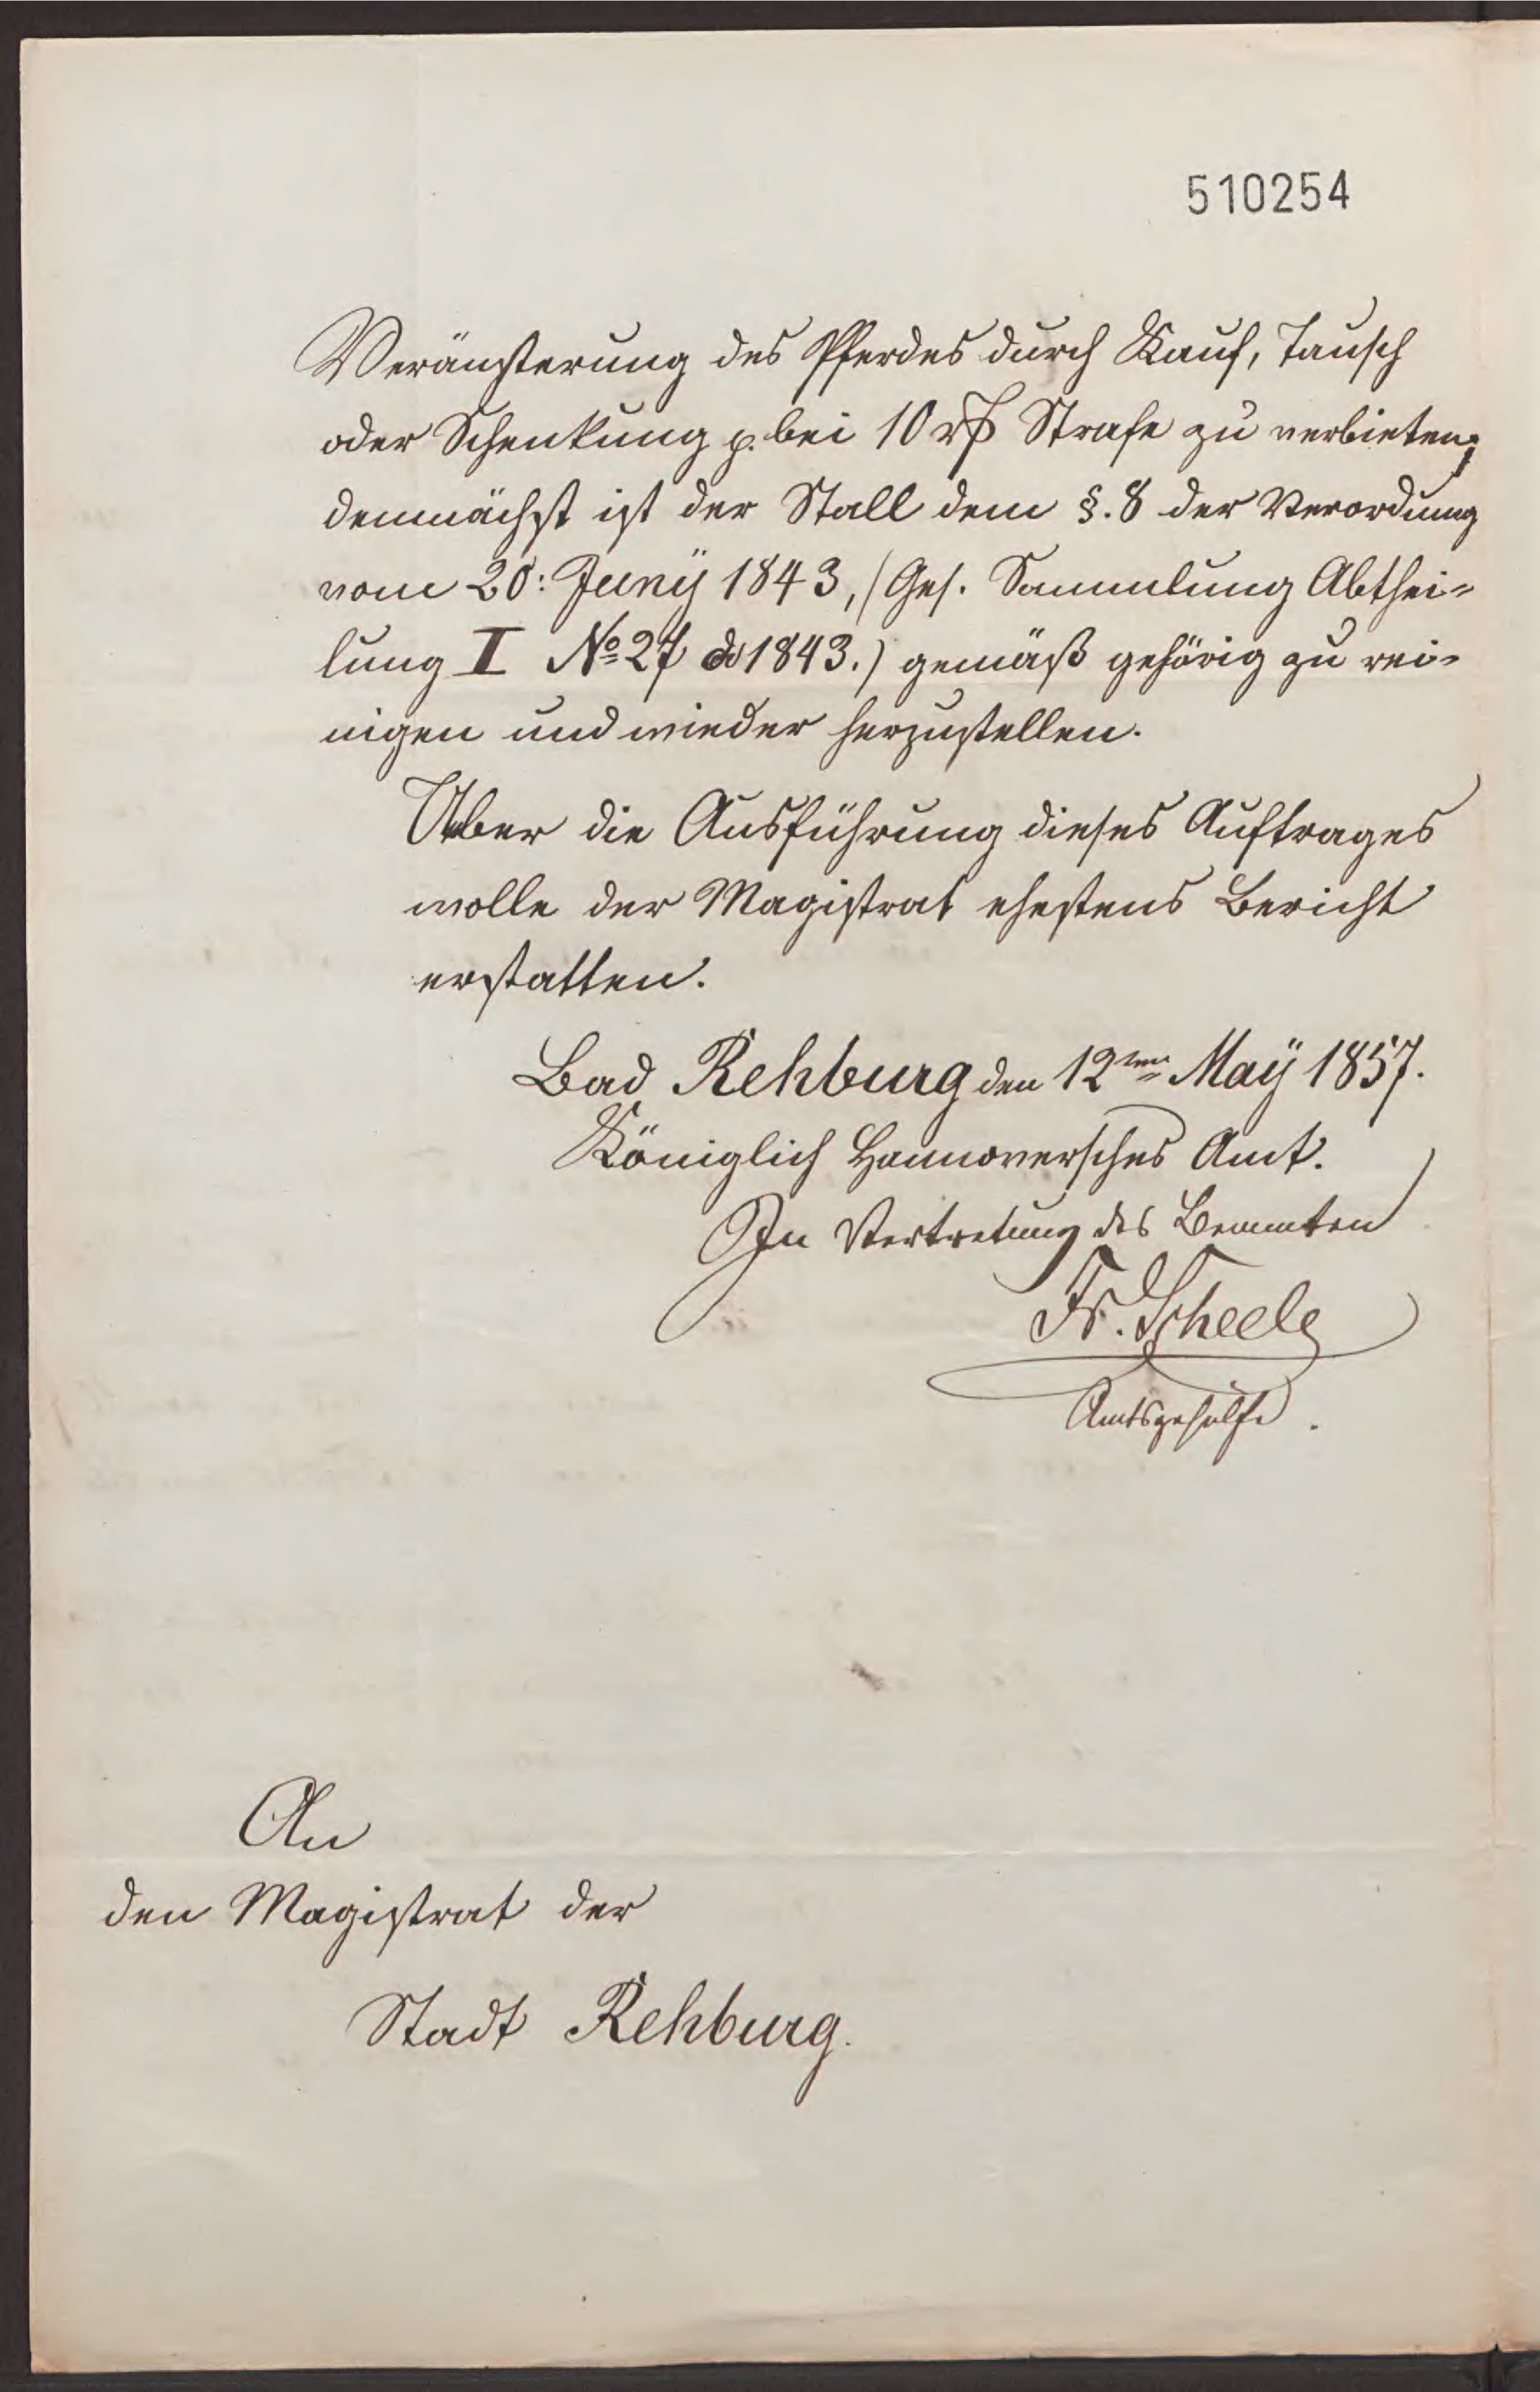 510254
Veräußerung des Pferdes durch Kauf, Tausch
oder Schenkung p. bei 10 rβ Strafe zu verbieten;
demnächst ist der Stall dem §. 8 der Verordnung
vom 20: Juny 1843, (Ges. Sammlung Abthei-
lung I No 27 de 1843.) gemäß gehörig zu rei-
nigen und wieder herzustellen.
Ueber die Ausführung dieses Auftrages
wolle der Magistrat ehestens Bericht
erstatten.
Bad Rehburg den 12ten Maÿ 1857.
Königlich Hannoversches Amt.
In Vertretung des Beamten
Fr. Scheele
Amtsgehülfe.
An
den Magistrat der
Stadt Rehburg.